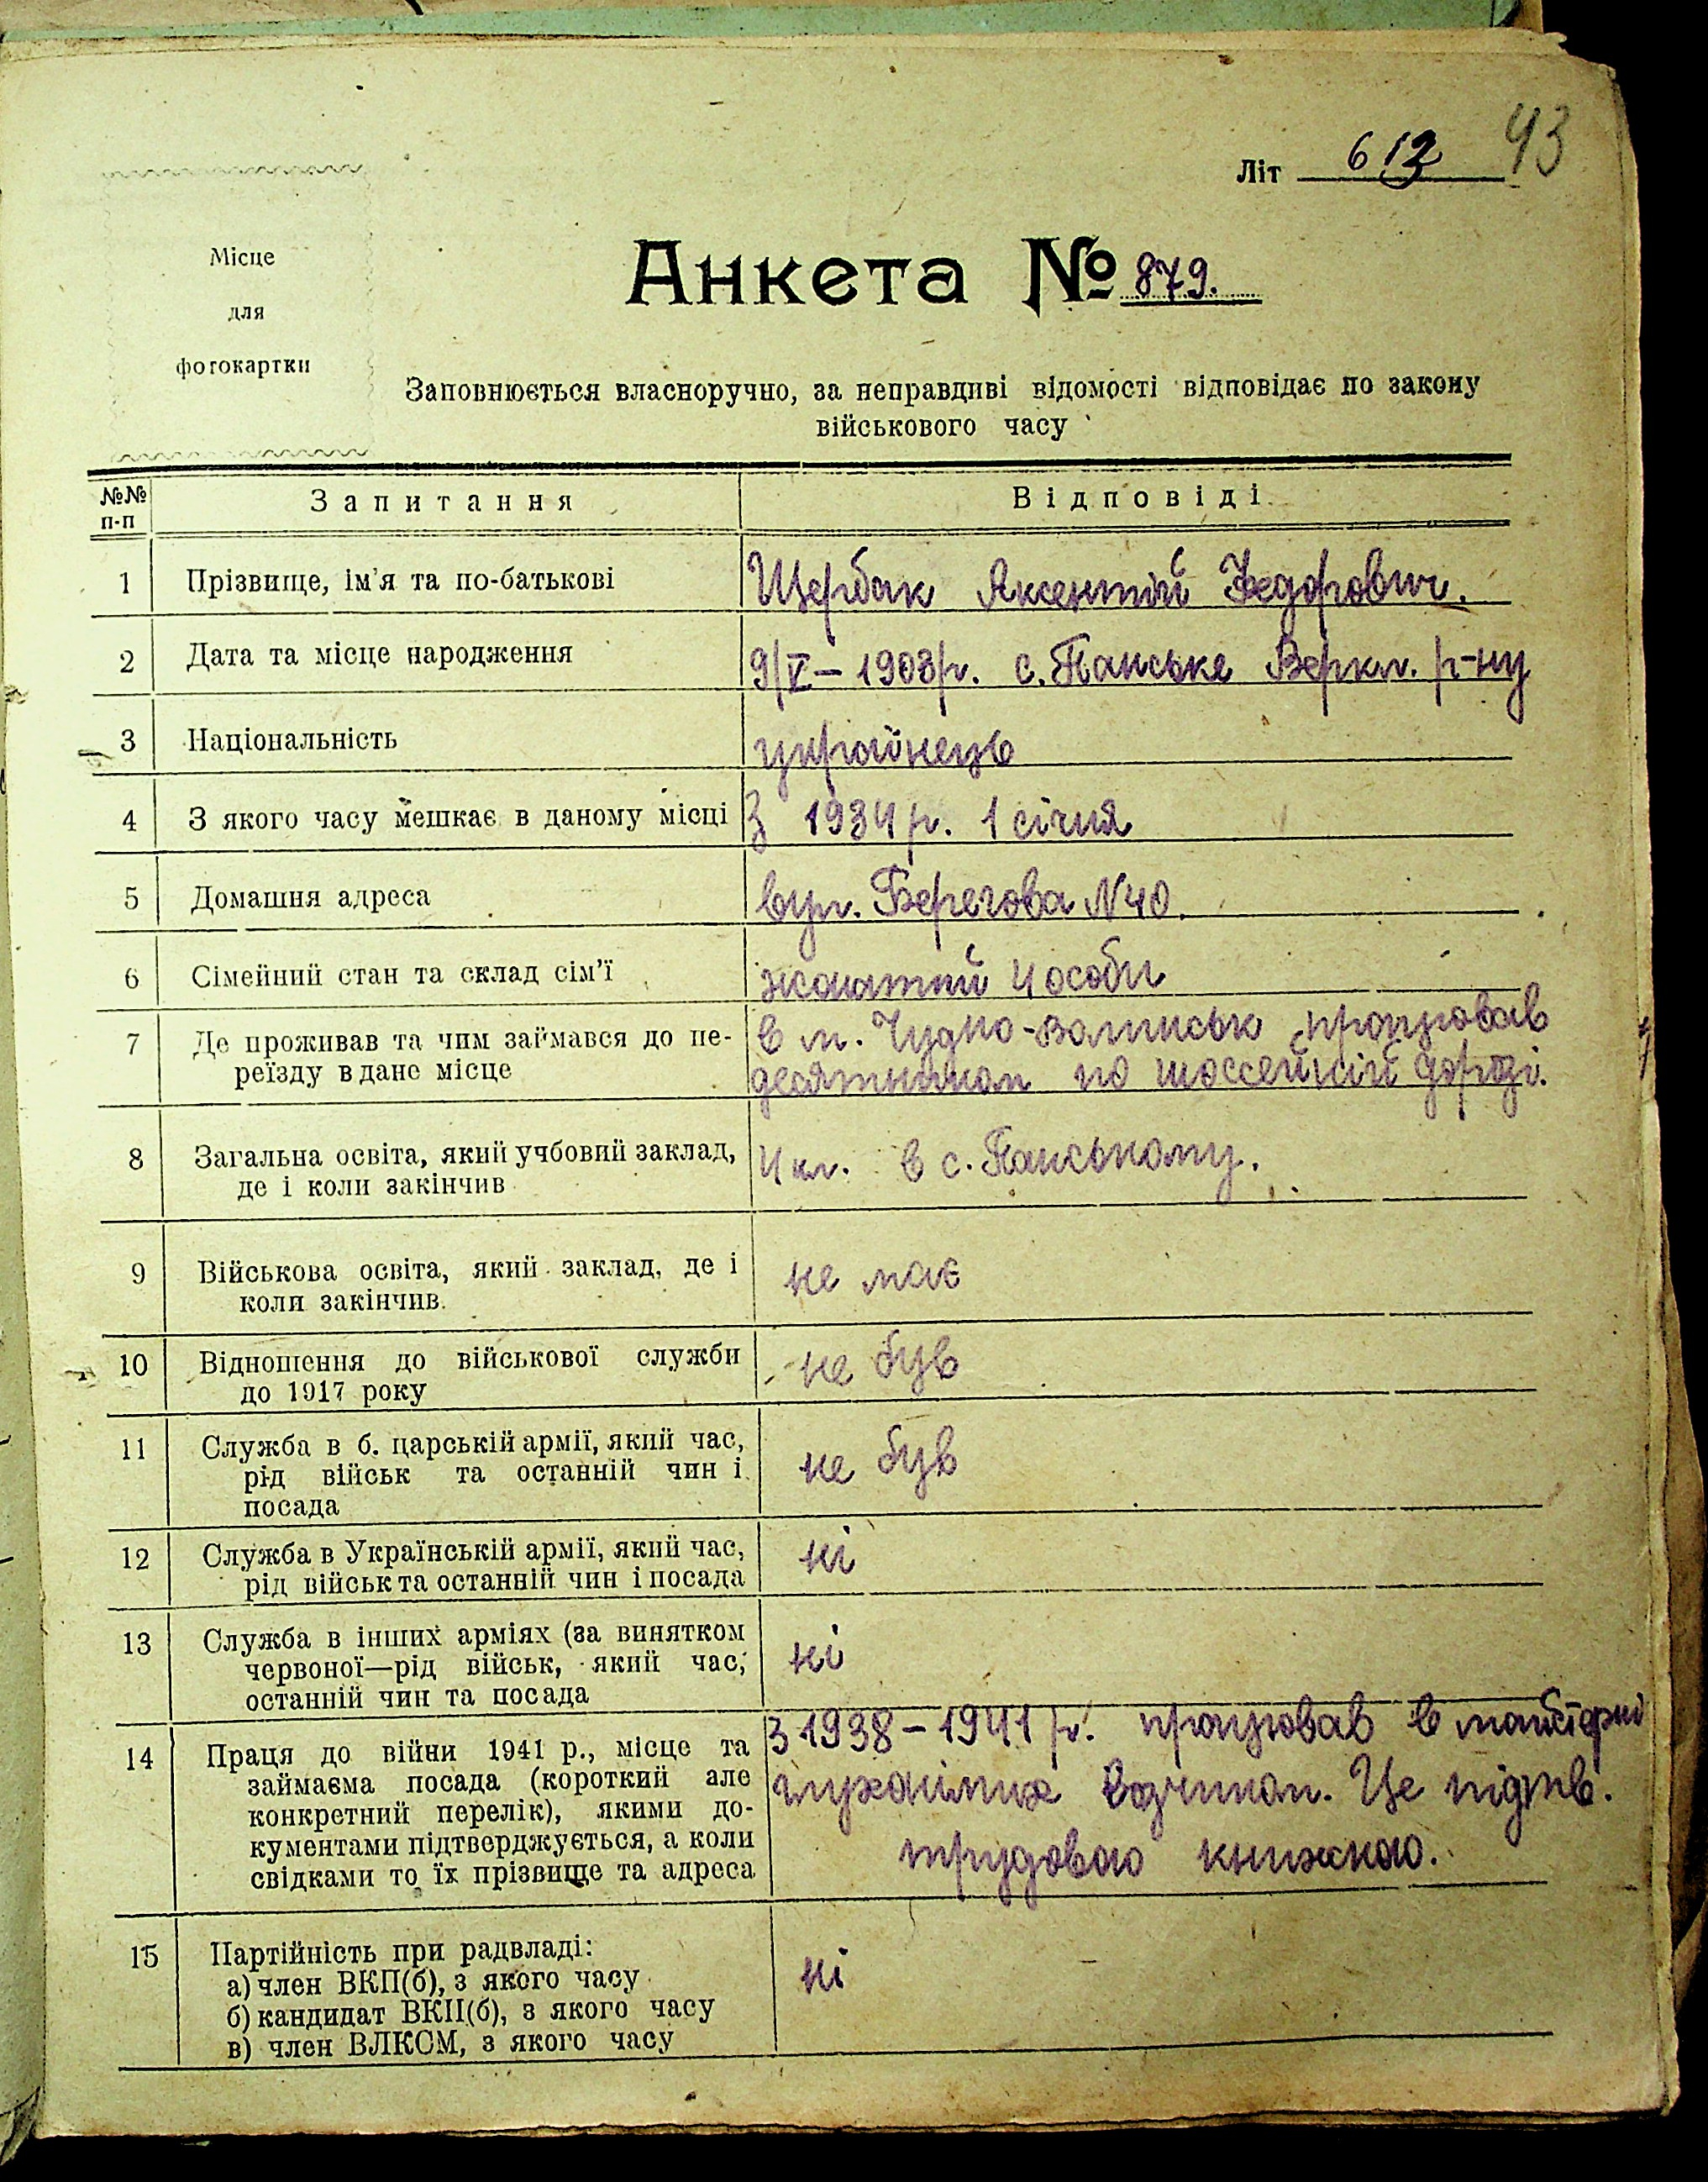 43
Літ 613
Місце
для
фотокартки
Анкета № 879.
Заповнюється власноручно, за неправдиві відомості відповідає по закону
військового часу
№№ п-п Запитання Відповіді
1 Прізвище, ім'я та по-батькові Щербак Аксентій Федорович.
2 Дата та місце народження 9/V – 1903 р. с. Панське Веркл. р-ну
3 Національність українець
4 З якого часу мешкає в даному місці З 1934 р. 1 січня
5 Домашня адреса вул. Берегова N 40.
6 Сімейний стан та склад сім'ї жонатий 4 особи
7 Де проживав та чим займався до пе- в м. Чудно-Волинськ працював
реїзду в дане місце десятником по шоссейній дорозі.
8 Загальна освіта, який учбовий заклад, 4 кл. в с. Панському.
де і коли закінчив
9 Військова освіта, який заклад, де і не має
коли закінчив
10 Відношення до військової служби не був
до 1917 року
11 Служба в б. царській армії, який час, не був
рід військ та останній чин і
посада
12 Служба в Українській армії, який час, ні
рід військ та останній чин і посада
13 Служба в інших арміях (за винятком ні
червоної—рід військ, який час,
останній чин та посада
14 Праця до війни 1941 р., місце та З 1938 – 1941 р. працював в майстерні
займаєма посада (короткий але глухонімих возчиком. Це підтв.
конкретний перелік), якими до- трудовою книжкою.
кументами підтверджується, а коли
свідками то їх прізвище та адреса
15 Партійність при радвладі: ні
а) член ВКП(б), з якого часу
б) кандидат ВКП(б), з якого часу
в) член ВЛКСМ, з якого часу